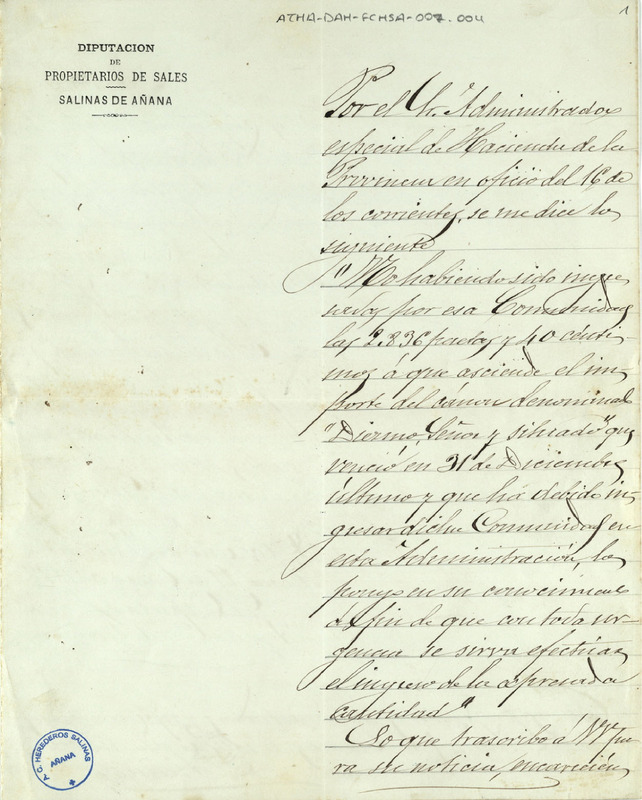 ATHA-DAH-FCHSA-007.004
1
DIPUTACION
DE
PROPIETARIOS DE SALES
SALINAS DE AÑANA
Por el Sr. Administrador
especial de Hacienda de la
Provincia en oficio del 16 de
los corrientes, se me dice lo
siguiente
"No habiendo sido ingre
sadas por esa Comunidad
las 2.836 pesetas y 40 cénti
mos á que asciende el im-
porte del cánon denominado
"Diezmo, Señor y silvado" que
venció en 31 de Diciembre
último y que ha debido in-
gresar dicha Comunidad en
esta Administración, lo
pongo en su conocimiento
á fin de que con toda ur-
gencia se sirva efectuar
el ingreso de la expresada
cantidad"
Lo que trascribo á V. pa
ra su noticia, encareciendo
P. C. HEREDEROS SALINAS
AÑANA